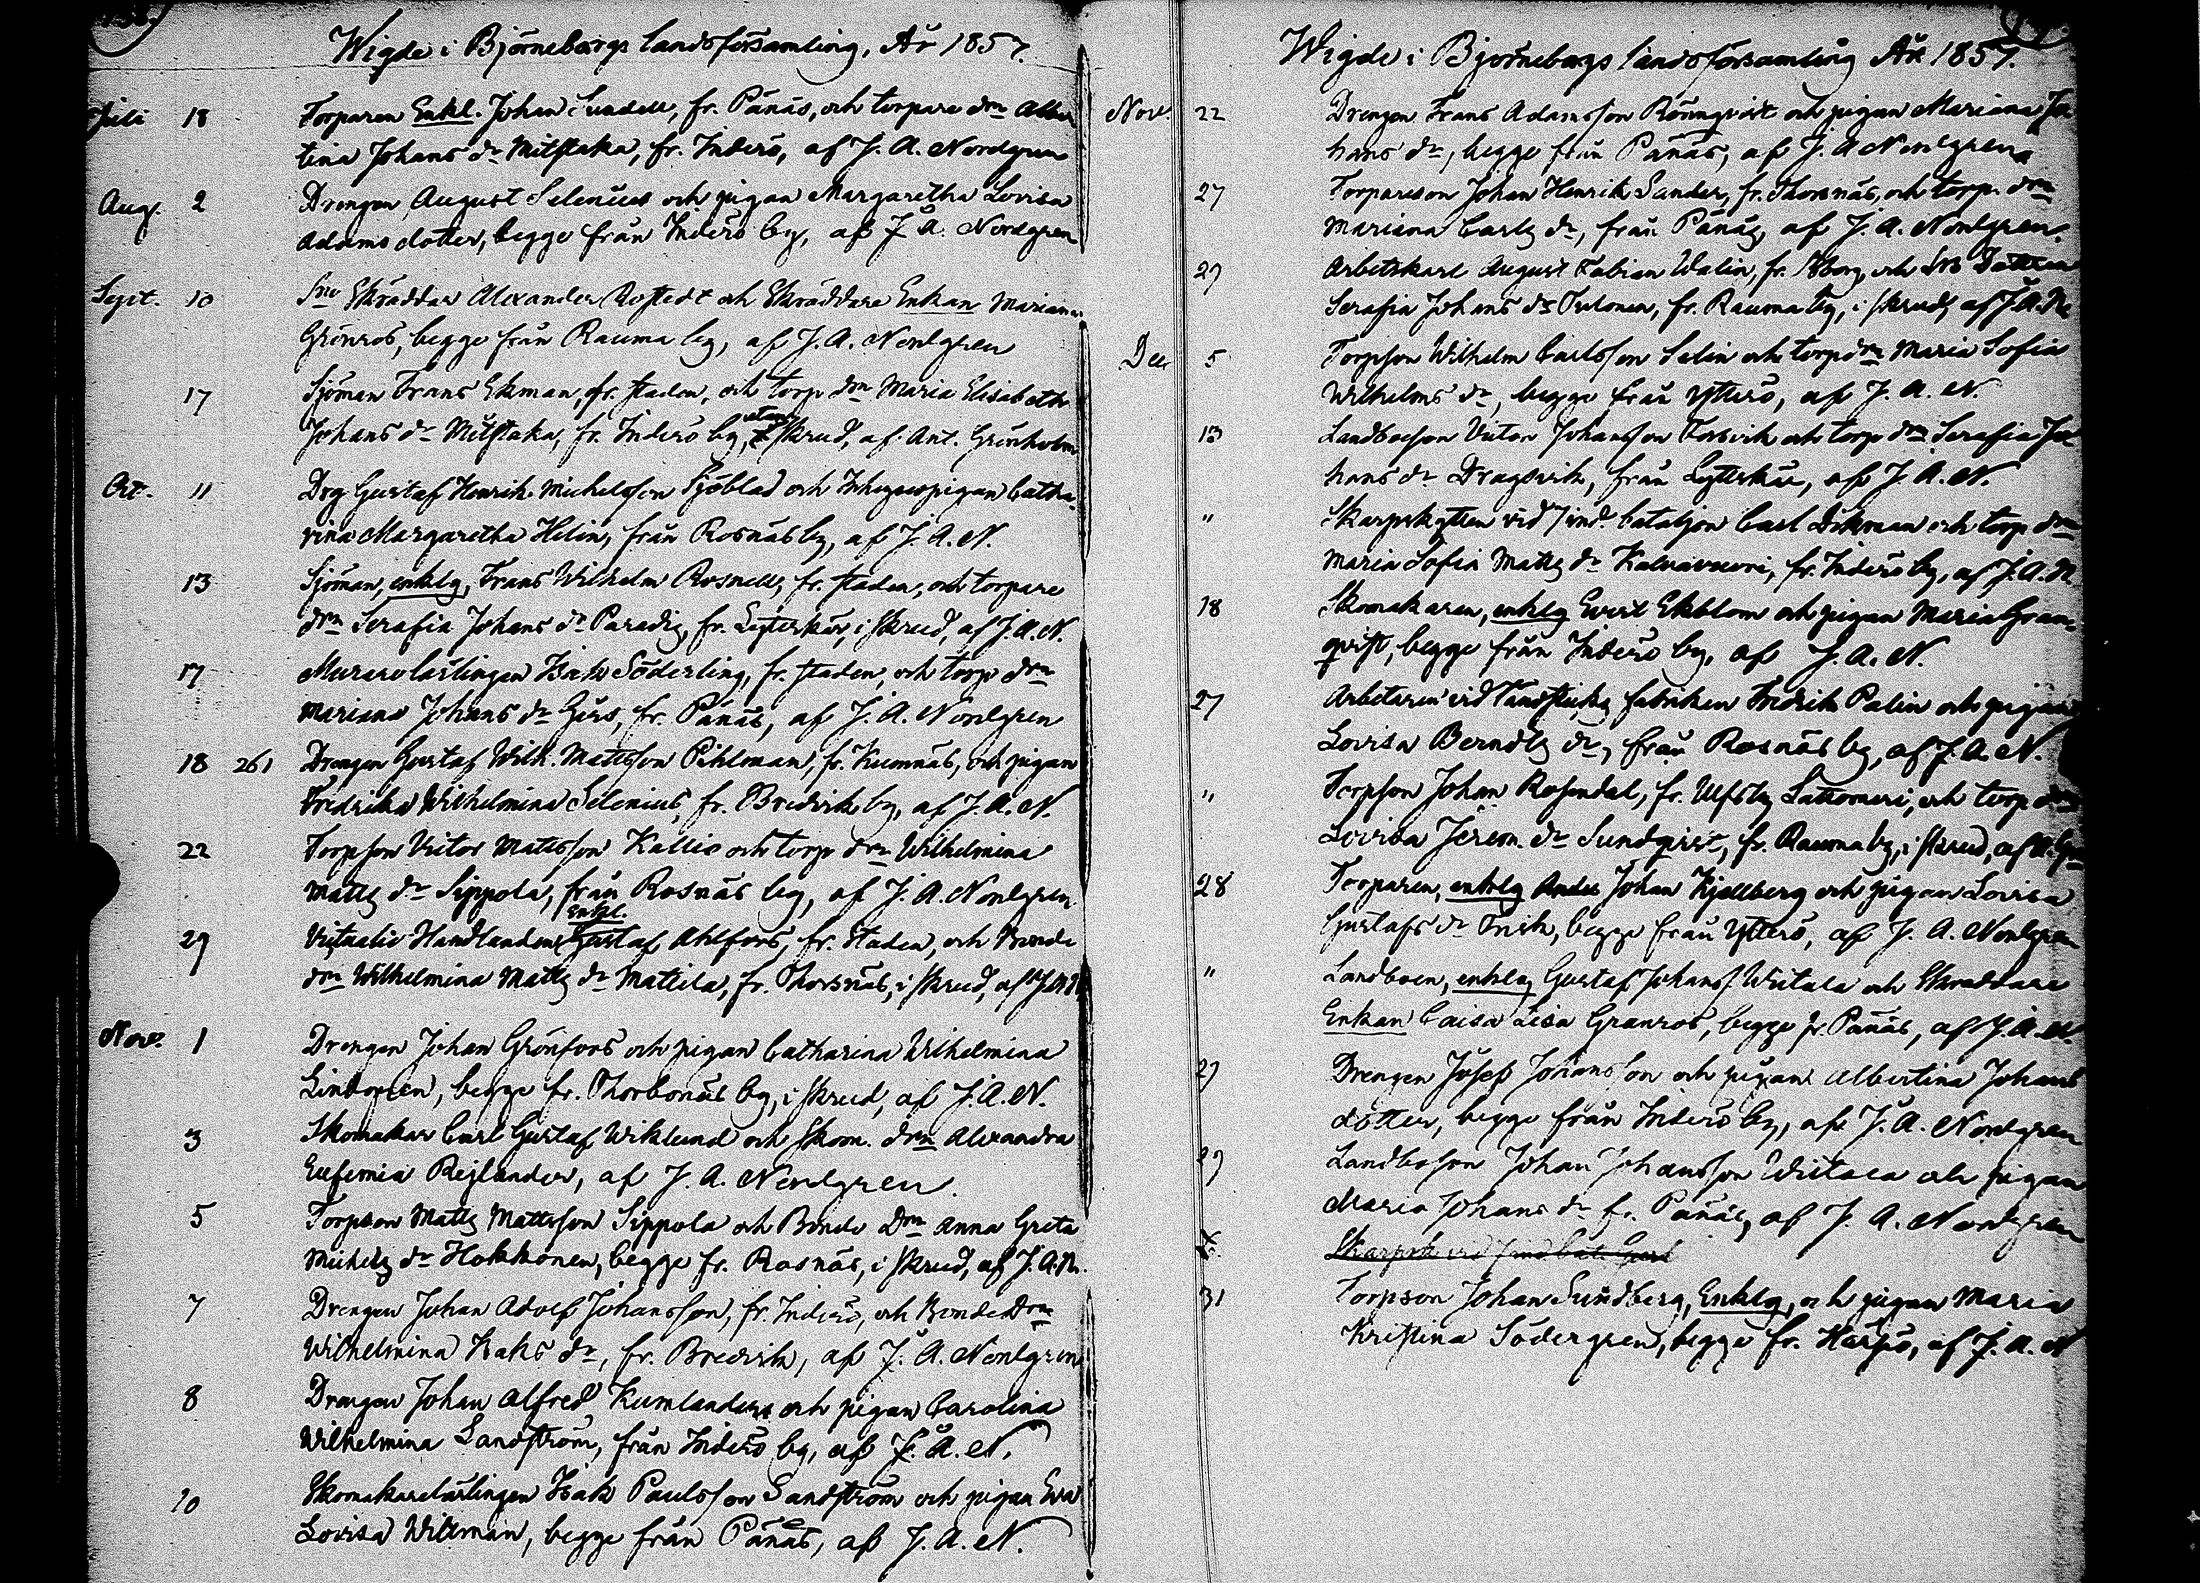 Wigde i Björneborgs landsförsamling, År 1857.
Juli 18 Torparen Enkl. Johan Sundell, fr. Pänäs, och torpare dm Alber
tina Johans dr Mitstaka, fr. Inderö, af J. A. Nordgren
Aug. 2 Drengen August Selenius och pigan Margaretha Lovisa
Adams dotter, begge från Inderö by, af J. A. Nordgren
Sept. 10 Skräddar Alexander Rostedt och Skräddare Enkan Mariana
Grönros, begge från Rauma by, af J. A. Nordgren
17 Sjöman Frans Ekman, fr. staden, och torp dm Maria Elisabeth
Johans dr Mitstaka, fr. Inderö by, utan skrud, af Ant. Grönholm
Oct. 11 Drg Gustaf Henrik Michelsson Sjöblad och Inhysespigan Catha-
rina Margaretha Helin, från Rosnäs by, af J. A. N.
13 Sjöman, enklg, Frans Wilhelm Rosnell, fr. staden, och torpare
dm Serafia Johans dr Paradig, fr. Lytterskär, i skrud, af J. A. N.
17 Murarelärlingen Isak Söderling, fr. staden, och torp dm
Mariana Johans dr Girs, fr. Pänäs, af J. A. Nordgren
18 261 Drengen Gustaf Wilh. Mattsson Pihlman, fr. Kumnäs, och pigan
Fredrika Wilhelmina Selenius, fr. Bredvik by, af J. A. N.
22 Torpson Victor Mattsson Kallio och torp dm Wilhelmina
Matts dr Sippola, från Rosnäs by, af J. A. Nordgren
Enkl.
29 Victualie Handlanden Gustaf Ahlfors, fr. staden, och Bonde
dm Wilhelmina Matts dr Mattila, fr. Thorsnäs, i skrud, af J. A. N.
Nov. 1 Drengen Johan Grönfors och pigan Catharina Wilhelmina
Lindgren, begge fr. Thorbonäs by, i skrud, af J. A. N.
3 Skomakar Carl Gustaf Wiklund och Skom. dm Alexandra
Eufemia Rejlander, af J. A. Nordgren.
5 Torpson Matts Mattsson Sippola och Bonde Dm Anna Greta
Michels dr Hokkonen, begge fr. Rosnäs, i skrud, af J. A. N.
7 Drengen Johan Adolf Johansson, fr. Inderö, och Bonde Dm
Wilhelmina Isaks dr, fr. Bredvik, af J. A. Nordgren
8 Drengen Johan Alfred Kumlander och pigan Carolina
Wilhelmina Sandström, från Inderö by, af J. A. N.
10 Skomakarelärlingen Isak Paulsson Sandström och pigan Eva
Lovisa Willman, begge från Pänäs, af J. A. N.
Wigde i Björneborgs landsförsamling År 1857.
Nov. 22 Drengen Frans Adamsson Rönnqvist och pigan Mariana Jo
hans dr, begge från Pänäs, af J. A. Nordgren
27 Torpareson Johan Henrik Sander, fr. Thorsnäs, och torp. dm
Mariana Carls dr, från Pänäs, af J. A. Nordgren.
29 Arbetskarl August Fabian Walin, fr. och
Serafia Johans dr Tulonen, fr. Rauma by, i skrud, af J. A. N.
Dec 5 Torpson Wilhelm Carlsson Salin och torp dm Maria Sofia
Wilhelms dr, begge från Ytterö, af J. A. N.
13 Landboson Victor Johansson Forsvik och torp dm Serafia Jo
hans dr Dragsvik, från Lytterskär, af J. A. N.
" Skarpskytten vid 7 ind. bataljon Carl Dikman och torp dm
Maria Sofia Matts dr Kalvavuori, fr. Inderö by, af J. A. N.
18 Skomakaren, enklg Evert Ekblom och pigan Maria Gran-
qvist, begge från Inderö by, af J. A. N.
27 Arbetaren vid Tändsticks fabriken Fredrik Palin och pigan
Lovisa Berndts dr, från Rosnäs by, af J. A. N.
" Torpson Johan Rosendal, fr. Ulfsby Lattomeri, och torp dm
Lovisa Jerem. dr Sundqvist, fr. Rauma by, i skrud, af A. Gr
28 Torparen, enklg Johan Kjellberg och pigan Lovisa
Gustafs dr Frisk, begge från Ytterö, af J. A. Nordgren
" Landboen, enklg, Gustaf Johanss Wiitala och Skräddare
Enkan Caisa Lisa Granros, begge fr. Pänäs, af J. A. N.
29 Drengen Josef Johansson och pigan Albertina Johans
dotter, begge från Inderö by, af J. A. Nordgren
29 Landboson Johan Johansson Wiitala och pigan
Maria Johans dr fr. Pänäs, af J. A. Nordgren
Skarpsk vid
31 Torpson Johan Sundberg, Enklg, och pigan Maria
Kristina Södergren, begge fr. Harjö, af J. A. N